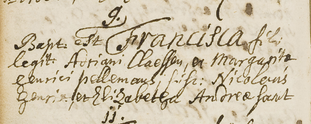 9.
Bapt: est Francisca fil:
legit: Adriani Claessen, et Margarita
Henrici pellemans, susc: Nicolaus
Henrix et Elizabetha Andreæ sant
11.